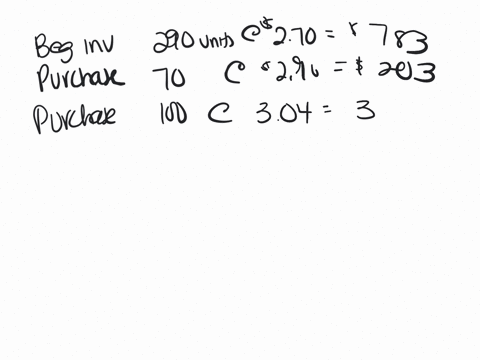 Beg inv 290 units @ $2.70 = $ 783
Purchase 70 @ $2.90 = $ 203
Purchase 100 @ 3.04 = 3